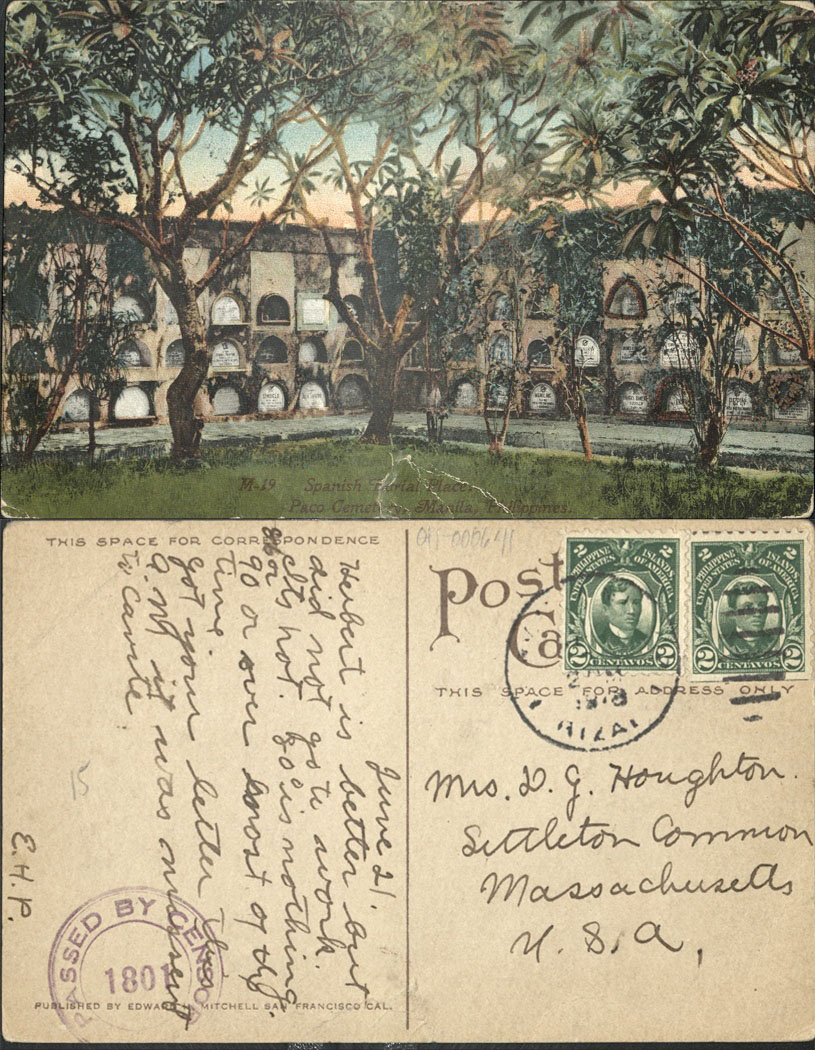 M-19 Spanish Burial Place,
Paco Cemetery, Manila, Philippines.
THIS SPACE FOR CORRESPONDENCE
June 21.
Herbert is better but
did not go to work.
its hot. 80° is nothing.
86 or
90 or over most of the
time.
Got your letter this
a.m. it was missent
to Cavite.
E.H.P.
15
PASSED BY CENSOR
1801
PUBLISHED BY EDWARD H. MITCHELL SAN FRANCISCO CAL.
Post
Ca
THIS SPACE FOR ADDRESS ONLY
2 2
PHILIPPINE ISLANDS
UNITED STATES OF AMERICA
2 CENTAVOS 2
2 2
PHILIPPINE ISLANDS
UNITED STATES OF AMERICA
2 CENTAVOS 2
RIZAL
Mrs. D. G. Houghton.
Settleton Common
Massachusetts
U. S. A.